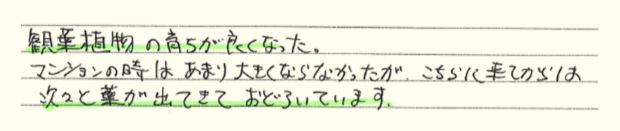 観葉植物の育ちが良くなった。
マンションの時はあまり大きくならなかったが、こちらに来てからは
次々と葉が出てきておどろいています。